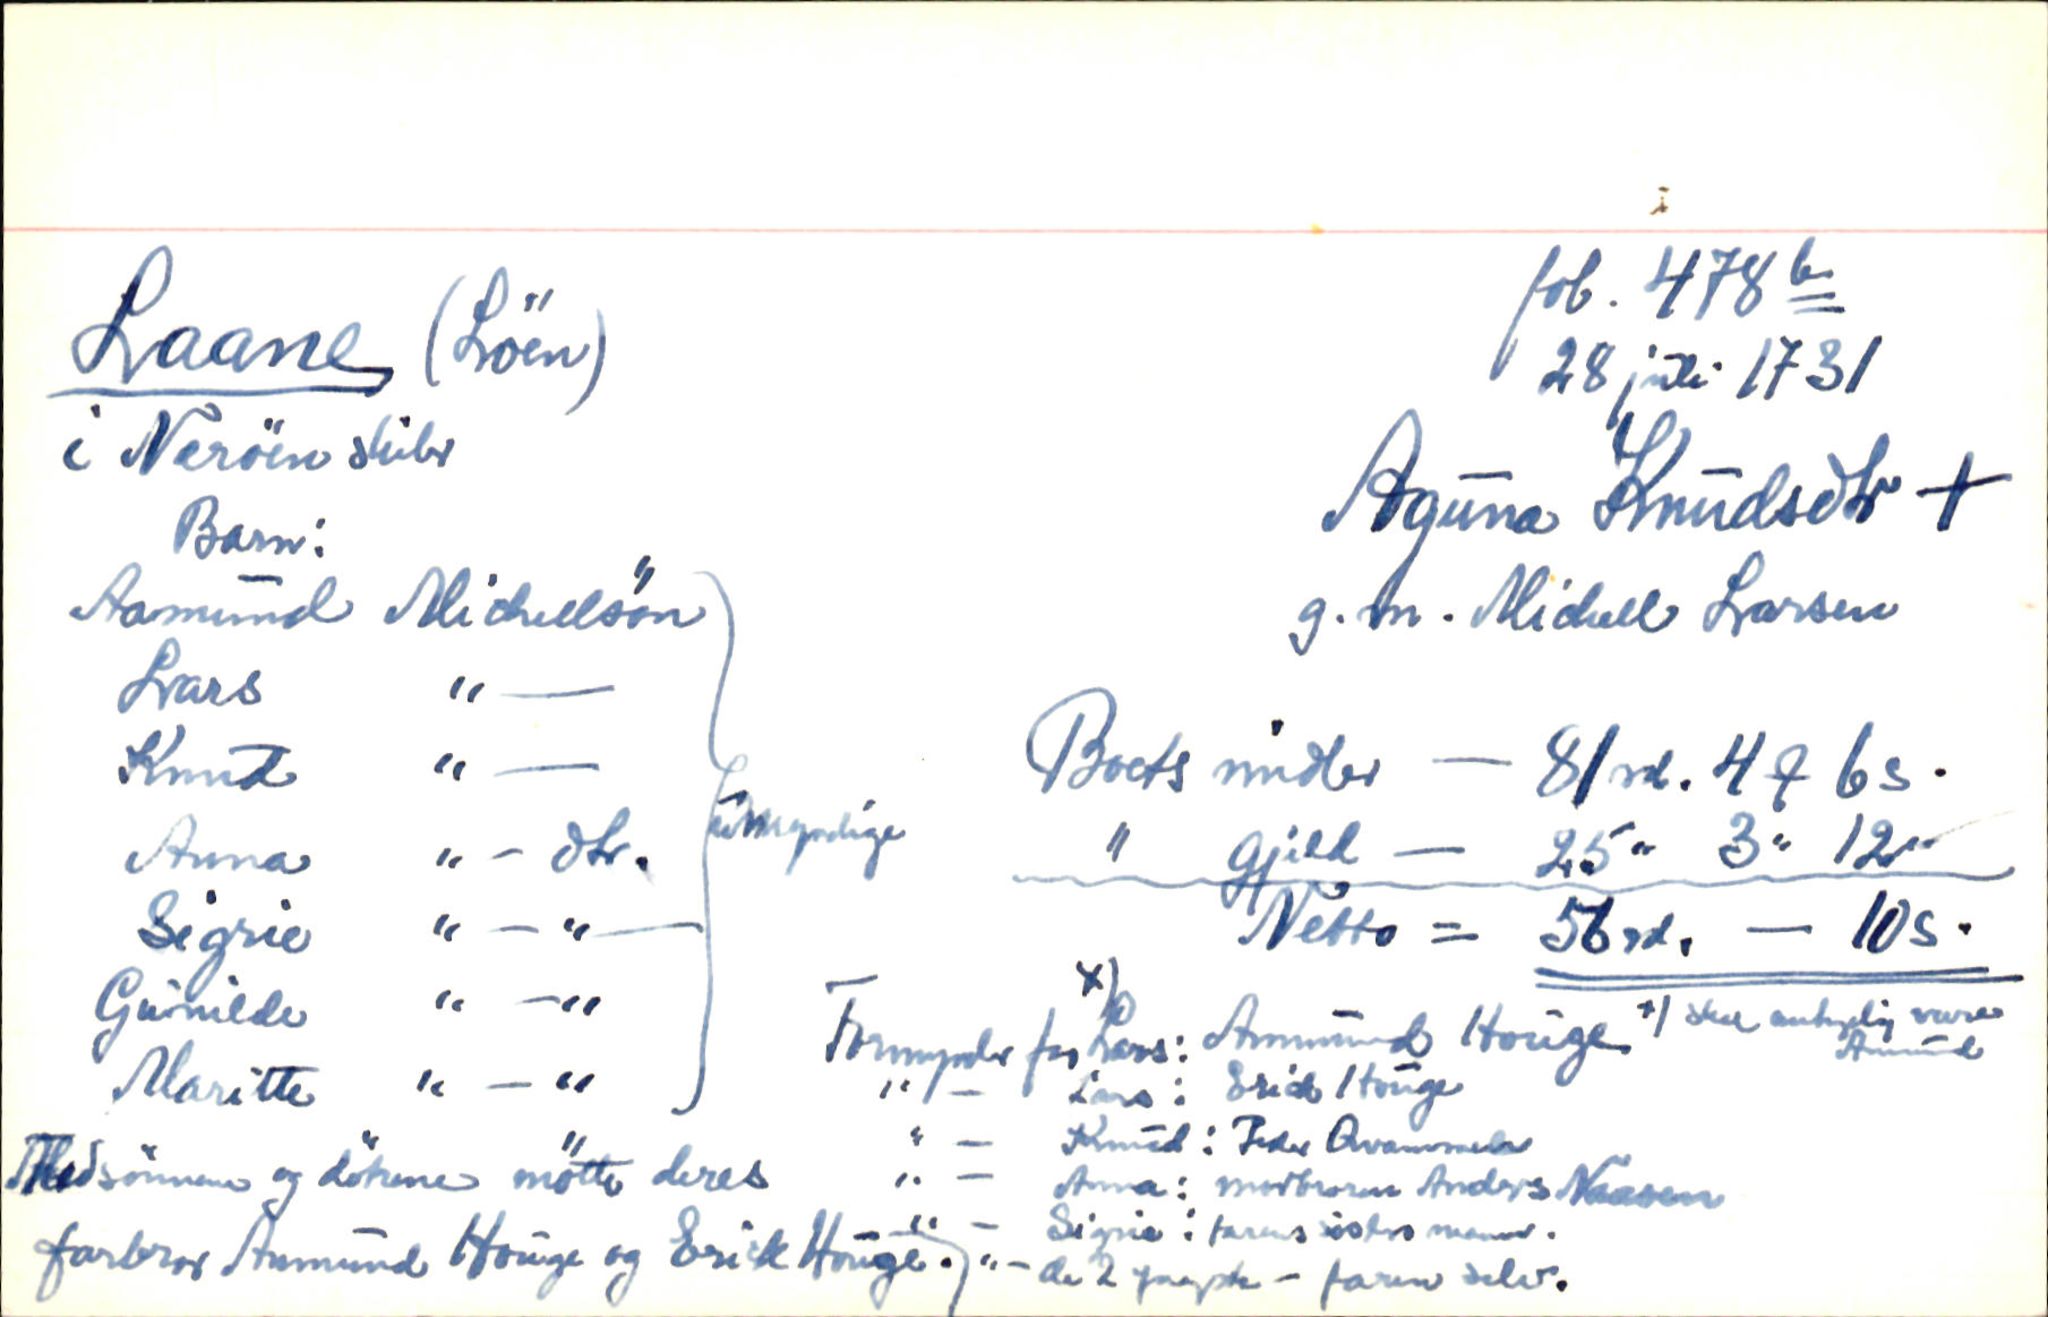 Laane (Löen)
i Neröen skibr
Barn:
Aamund Michellsön
Lars " —
Knud " —
Anna " – dtr.
Sigrie " – " —
Gunilde " – "
Maritte " – "
umyndige
Med sönnene og dötrene mötte deres
farbror Aamund Houge og Erick Houge.
fol. 478 b
28 juli 1731
Aguna Knudsdtr +
g. m. Michell Larsen
Boets midler — 81 rd. 4 ₰ 6 s.
" gjeld — 25 " 3 " 12 "
Netto = 56 rd. — 10 s.
Formynder for x) Lars: Ammund Houge x) skal antagelig være Amund
" — Lars: Erick Houge
" — Knud: Peder Qvammedal
" — Anna: morbroren Anders Naasen
" — Sigrie: farens sösters mann.
" – de 2 yngste – faren selv.